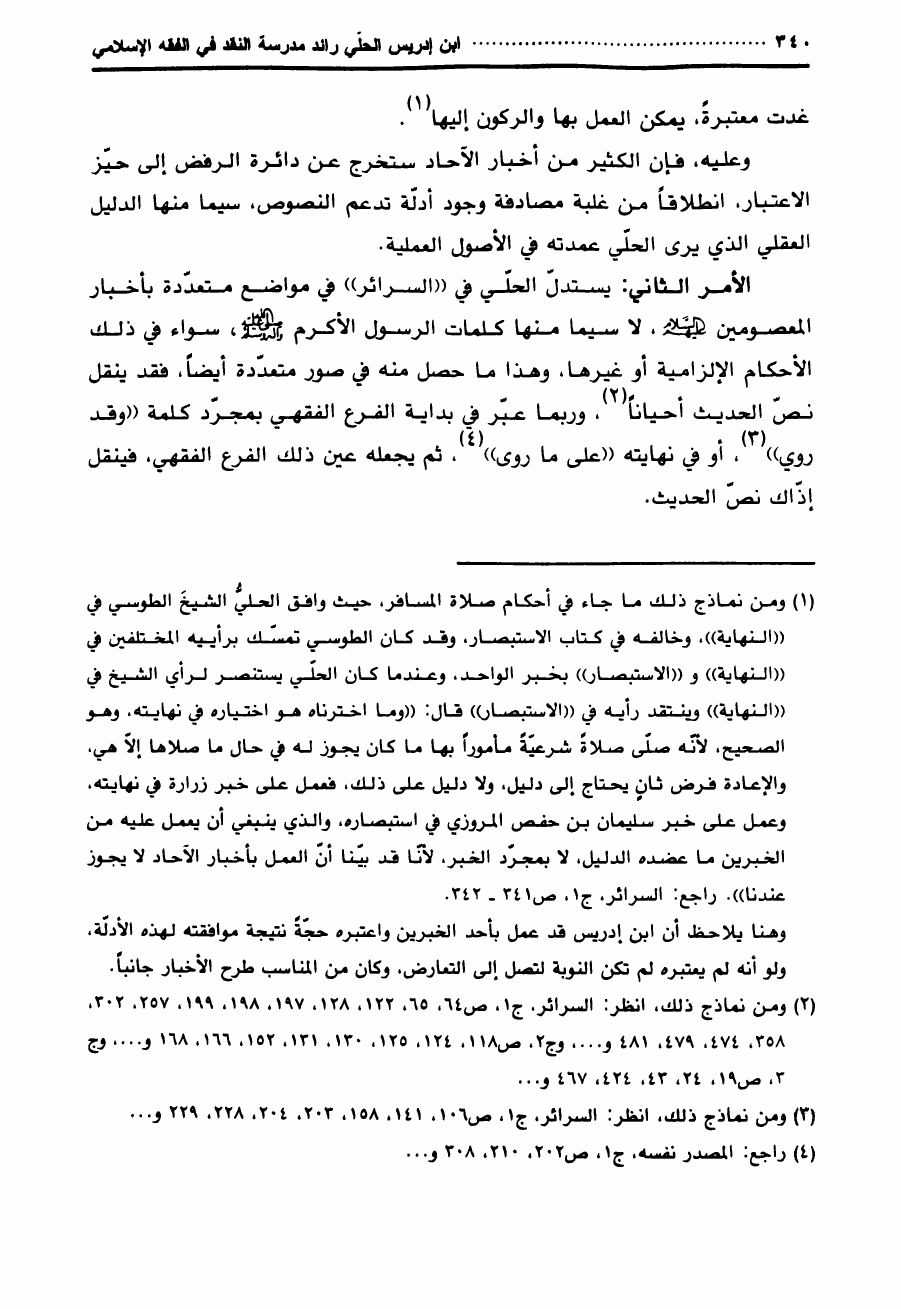 ٣٤٠ ............................................. ابن إدريس الحلّي رائد مدرسة النقد في الفقه الإسلامي
غدت معتبرةً، يمكن العمل بها والركون إليها(١).
وعليه، فإن الكثير من أخبار الآحاد ستخرج عن دائرة الرفض إلى حيّز
الاعتبار، انطلاقاً من غلبة مصادفة وجود أدلّة تدعم النصوص، سيما منها الدليل
العقلي الذي يرى الحلّي عمدته في الأصول العملية.
الأمر الثاني: يستدلّ الحلّي في ((السرائر)) في مواضع متعدّدة بأخبار
المعصومين عليهم السلام، لا سيما منها كلمات الرسول الأكرم صلى الله عليه وآله وسلم، سواء في ذلك
الأحكام الإلزامية أو غيرها، وهذا ما حصل منه في صور متعدّدة أيضاً، فقد ينقل
نصّ الحديث أحياناً(٢)، وربما عبّر في بداية الفرع الفقهي بمجرّد كلمة ((وقد
روي))(٣)، أو في نهايته ((على ما روى))(٤)، ثم يجعله عين ذلك الفرع الفقهي، فينقل
إذّاك نصّ الحديث.
(١) ومن نماذج ذلك ما جاء في أحكام صلاة المسافر، حيث وافق الحليُّ الشيخَ الطوسي في
((النهاية))، وخالفه في كتاب الاستبصار، وقد كان الطوسي تمسّك برأييه المختلفين في
((النهاية)) و ((الاستبصار)) بخبر الواحد، وعندما كان الحلّي يستنصر لرأي الشيخ في
((النهاية)) وينتقد رأيه في ((الاستبصار)) قال: ((وما اخترناه هو اختياره في نهايته، وهو
الصحيح، لأنّه صلّى صلاةً شرعيّةً مأموراً بها ما كان يجوز له في حال ما صلاها إلاّ هي،
والإعادة فرض ثانٍ يحتاج إلى دليل، ولا دليل على ذلك، فعمل على خبر زرارة في نهايته،
وعمل على خبر سليمان بن حفص المروزي في استبصاره، والذي ينبغي أن يعمل عليه من
الخبرين ما عضده الدليل، لا بمجرّد الخبر، لأنّا قد بيّنا أنّ العمل بأخبار الآحاد لا يجوز
عندنا)). راجع: السرائر، ج١، ص٣٤١ ـ ٣٤٢.
وهنا يلاحظ أن ابن إدريس قد عمل بأحد الخبرين واعتبره حجّةً نتيجة موافقته لهذه الأدلّة،
ولو أنه لم يعتبره لم تكن النوبة لتصل إلى التعارض، وكان من المناسب طرح الأخبار جانباً.
(٢) ومن نماذج ذلك، انظر: السرائر، ج١، ص٦٤، ٦٥، ١٢٢، ١٢٨، ١٩٧، ١٩٨، ١٩٩، ٢٥٧، ٣٠٢،
٣٥٨، ٤٧٤، ٤٧٩، ٤٨١ و...، وج٢، ص١١٨، ١٢٤، ١٢٥، ١٣٠، ١٣١، ١٥٢، ١٦٦، ١٦٨ و...، وج
٣، ص١٩، ٢٤، ٤٣، ٤٢٤، ٤٦٧ و...
(٣) ومن نماذج ذلك، انظر: السرائر، ج١، ص١٠٦، ١٤١، ١٥٨، ٢٠٣، ٢٠٤، ٢٢٨، ٢٢٩ و...
(٤) راجع: المصدر نفسه، ج١، ص٢٠٢، ٢١٠، ٣٠٨ و...